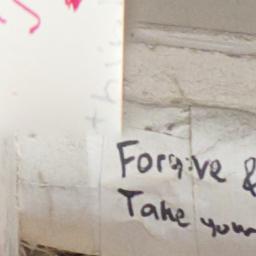 Forgive &
Take your